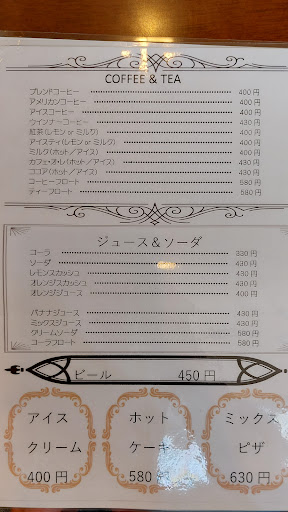 COFFEE & TEA
ブレンドコーヒー 400円
アメリカンコーヒー 400円
アイスコーヒー 400円
ウインナーコーヒー 430円
紅茶(レモン or ミルク) 400円
アイスティ(レモン or ミルク) 400円
ミルク(ホット/アイス) 400円
カフェ・オ・レ(ホット/アイス) 430円
ココア(ホット/アイス) 430円
コーヒーフロート 580円
ティーフロート 580円
ジュース&ソーダ
コーラ 330円
ソーダ 430円
レモンスカッシュ 430円
オレンジスカッシュ 430円
オレンジジュース 400円
バナナジュース 430円
ミックスジュース 430円
クリームソーダ 580円
コーラフロート 580円
ビール 450円
アイス
クリーム
400円
ホット
ケーキ
580円
ミックス
ピザ
630円